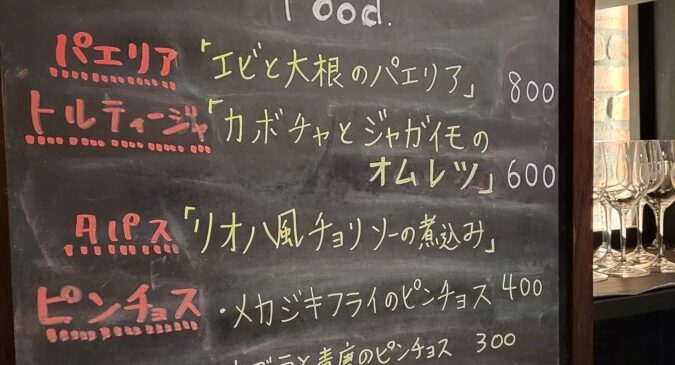 Food.
パエリア「エビと大根のパエリア」 800
トルティージャ「カボチャとジャガイモの
オムレツ」600
タパス「リオハ風チョリソーの煮込み」
ピンチョス ・メカジキフライのピンチョス 400
のピンチョス 300